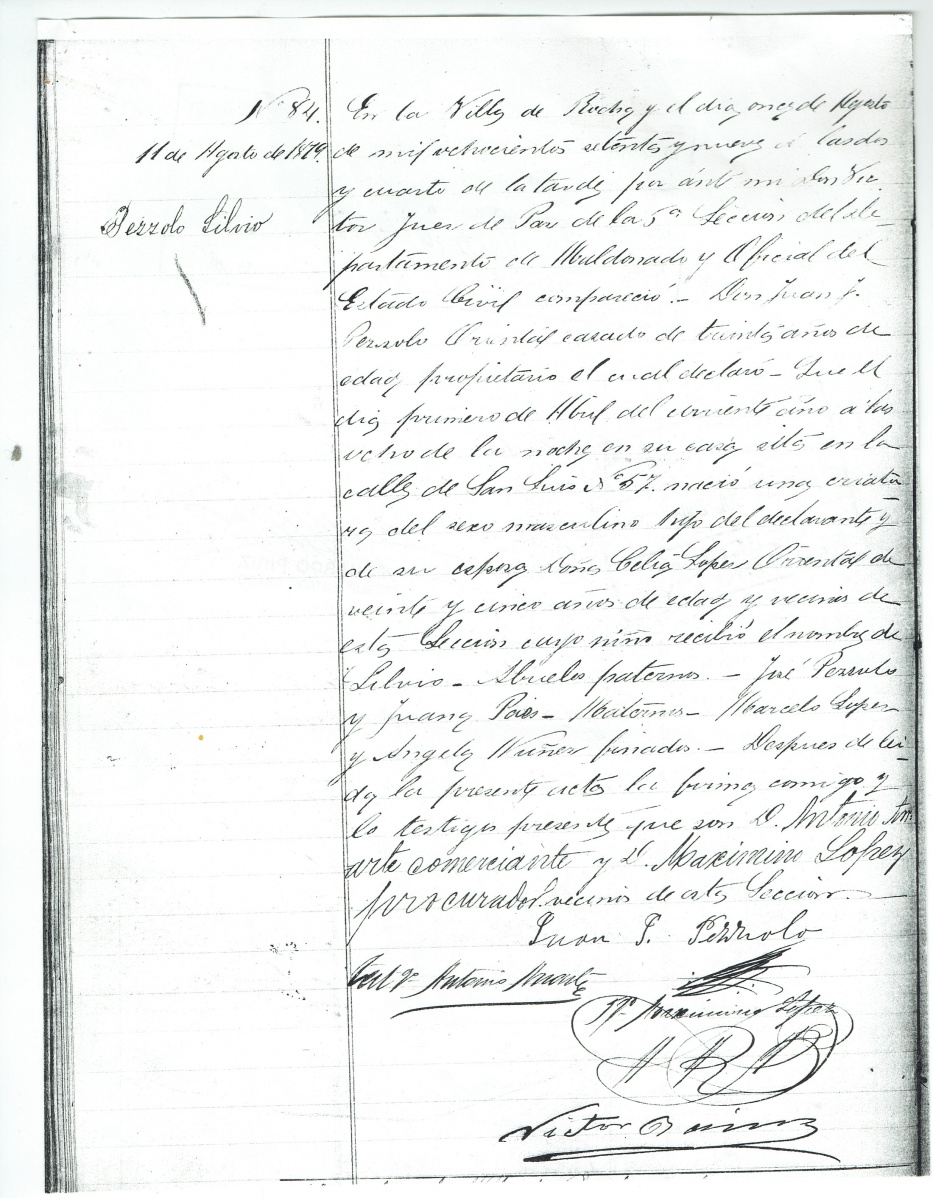 Nº 84.
11 de Agosto de 1879.
Pezzolo Silvio
En la Villa de Rocha y el dia once de Agosto
de mil ochocientos setenta y nueve á las dos
y cuarto de la tarde por ánte mi Don Vic
tor Juez de Paz de la 5ª Seccion del de
partamento de Maldonado y Oficial del
Estado Civil compareció. – Don Juan J.
Pezzolo Oriental casado de treinta años de
edad propietario el cual declaró – Que el
dia primero de Abril del corriente año a las
ocho de la noche en su casa sita en la
calle de San Luis Nº 57. nació una criatu
ra del sexo masculino hijo del declarante y
de su esposa Doña Celia Lopez Oriental de
veinte y cinco años de edad y vecinos de
esta Seccion cuyo niño recibió el nombre de
Silvio – Abuelos paternos. – José Pezzolo
y Juana Pais – Maternos – Marcelo Lopez
y Angela Nuñez finados. – Despues de lei-
da la presente acta la firma comigo y
lo testigos presente que son D. Antonio
comerciante y D. Maximino Lopez
procurador vecinos de esta Seccion. –
Juan J. Pezzolo
Antonio
Maximino Lopez
Victor